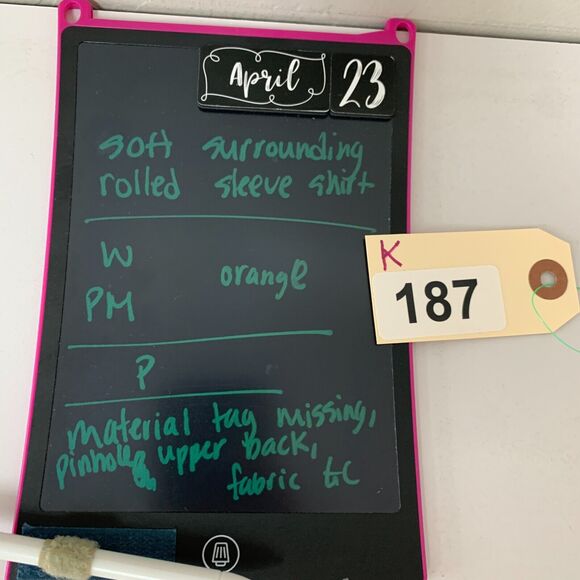 April 23
soft surrounding
rolled sleeve shirt
W
orange
PM
K
187
P
material tag missing,
pinholes upper back,
fabric